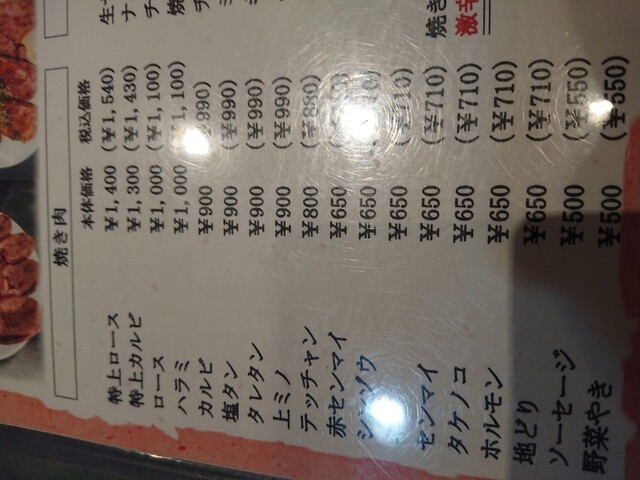 焼き肉
本体価格 税込価格
特上ロース ¥1,400 (¥1,540)
特上カルビ ¥1,300 (¥1,430)
ロース ¥1,000 (¥1,100)
ハラミ ¥1,000 (¥1,100)
カルビ ¥900 (¥990)
塩タン ¥900 (¥990)
タレタン ¥900 (¥990)
上ミノ ¥900 (¥990)
テッチャン ¥800 (¥880)
赤センマイ ¥650
シンゾウ ¥650
¥650 (¥710)
センマイ ¥650 (¥710)
タケノコ ¥650 (¥710)
ホルモン ¥650 (¥710)
地どり ¥650 (¥710)
ソーセージ ¥500 (¥550)
野菜やき ¥500 (¥550)
焼き
激辛